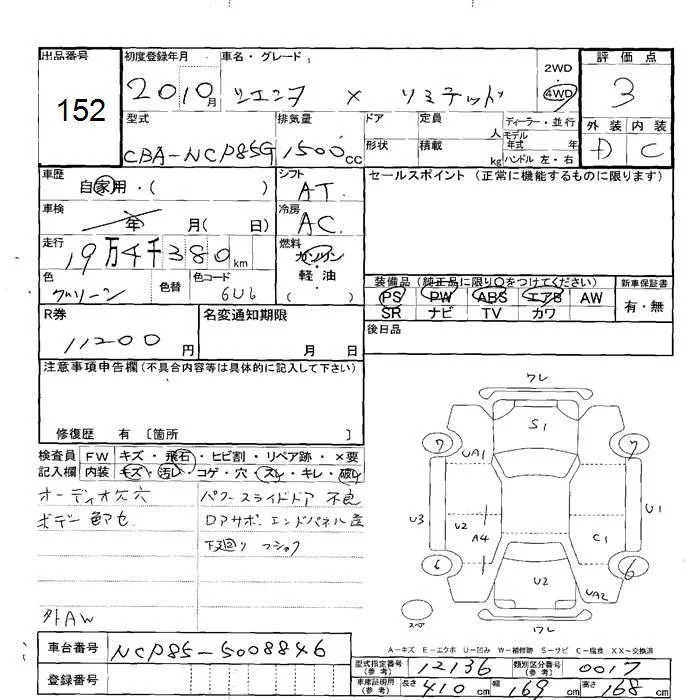 出品番号
152
初度登録年月
2010月
車名・グレード
シエンタ × リミテッド
2WD
4WD
評価点
3
外装 内装
D C
型式
CBA-NCP85G
排気量
1500cc
ドア
定員 人
ディーラー・並行
モデル年式 年
形状
積載 kg
ハンドル 左・右
車歴
自家用・( )
シフト
AT
セールスポイント (正常に機能するものに限ります)
車検
年 月( 日)
冷房
AC
走行
19万4千380km
燃料
ガソリン
軽・油
( )
色
グリーン
色替
色コード
6U6
装備品 (純正品に限り○をつけてください)
新車保証書
PS PW ABS エアB AW
SR ナビ TV カワ
有・無
R券
11200円
名変通知期限
月 日
後日品
注意事項申告欄(不具合内容等は具体的に記入して下さい)
修復歴 有 〔箇所 〕
検査員 FW キズ・飛石・ヒビ割・リペア跡・×要
記入欄 内装 キズ・汚レ・コゲ・穴・スレ・キレ・破レ
オーディオ欠穴
ボデー色アセ
パワースライドドア 不良
DアサポーエンドパネルË
下廻り フショク
外AW
ワレ
S1
7
7
UA1
U3
U2
A4
C1
U1
6
6
U2
UA2
スペア
ワレ
A-キズ E-エクボ U-凹み W-補修跡 S-サビ C-腐食 XX-交換済
車台番号
NCP85-5008846
型式指定番号(参考)
12136
類別区分番号(参考)
0017
登録番号
車庫証明用(参考)
長さ 410cm
幅 169cm
高さ 168cm